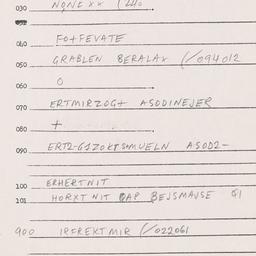 030 NONEXX (200
040 FOTFEVATE
050 GRABLEN BERALAX (/094012
060 O
070 ERTMIRZOGT ASODINEJER
080 +
090 ERT2-G1ZOKTSMVELN ASOD2-
100 ERHERTNIT
101 HORXTNIT BAP BEJSMAUSE G1
900 IRFREKTMIR (/022061